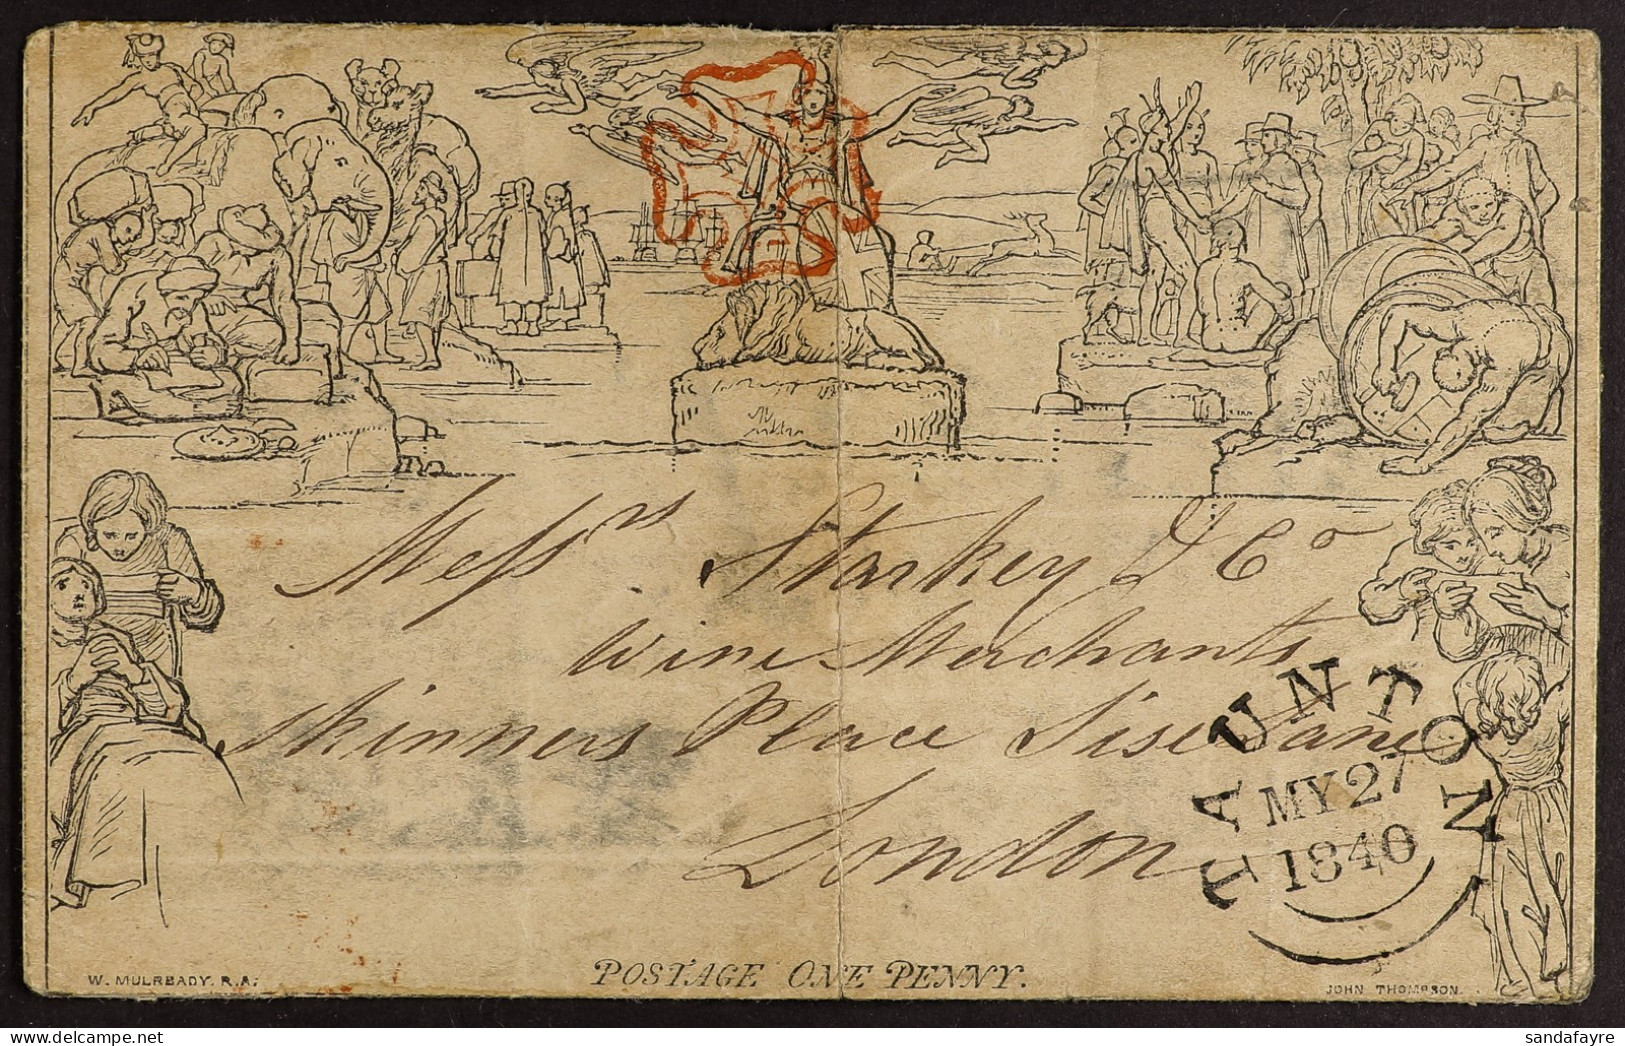 Messrs Starkey & Co
Wine Merchants
Skinners Place Sise Lane
London
TAUNTON
MY 27
1840
POSTAGE ONE PENNY.
W. MULREADY. R.A.
JOHN THOMPSON.
sandafayre